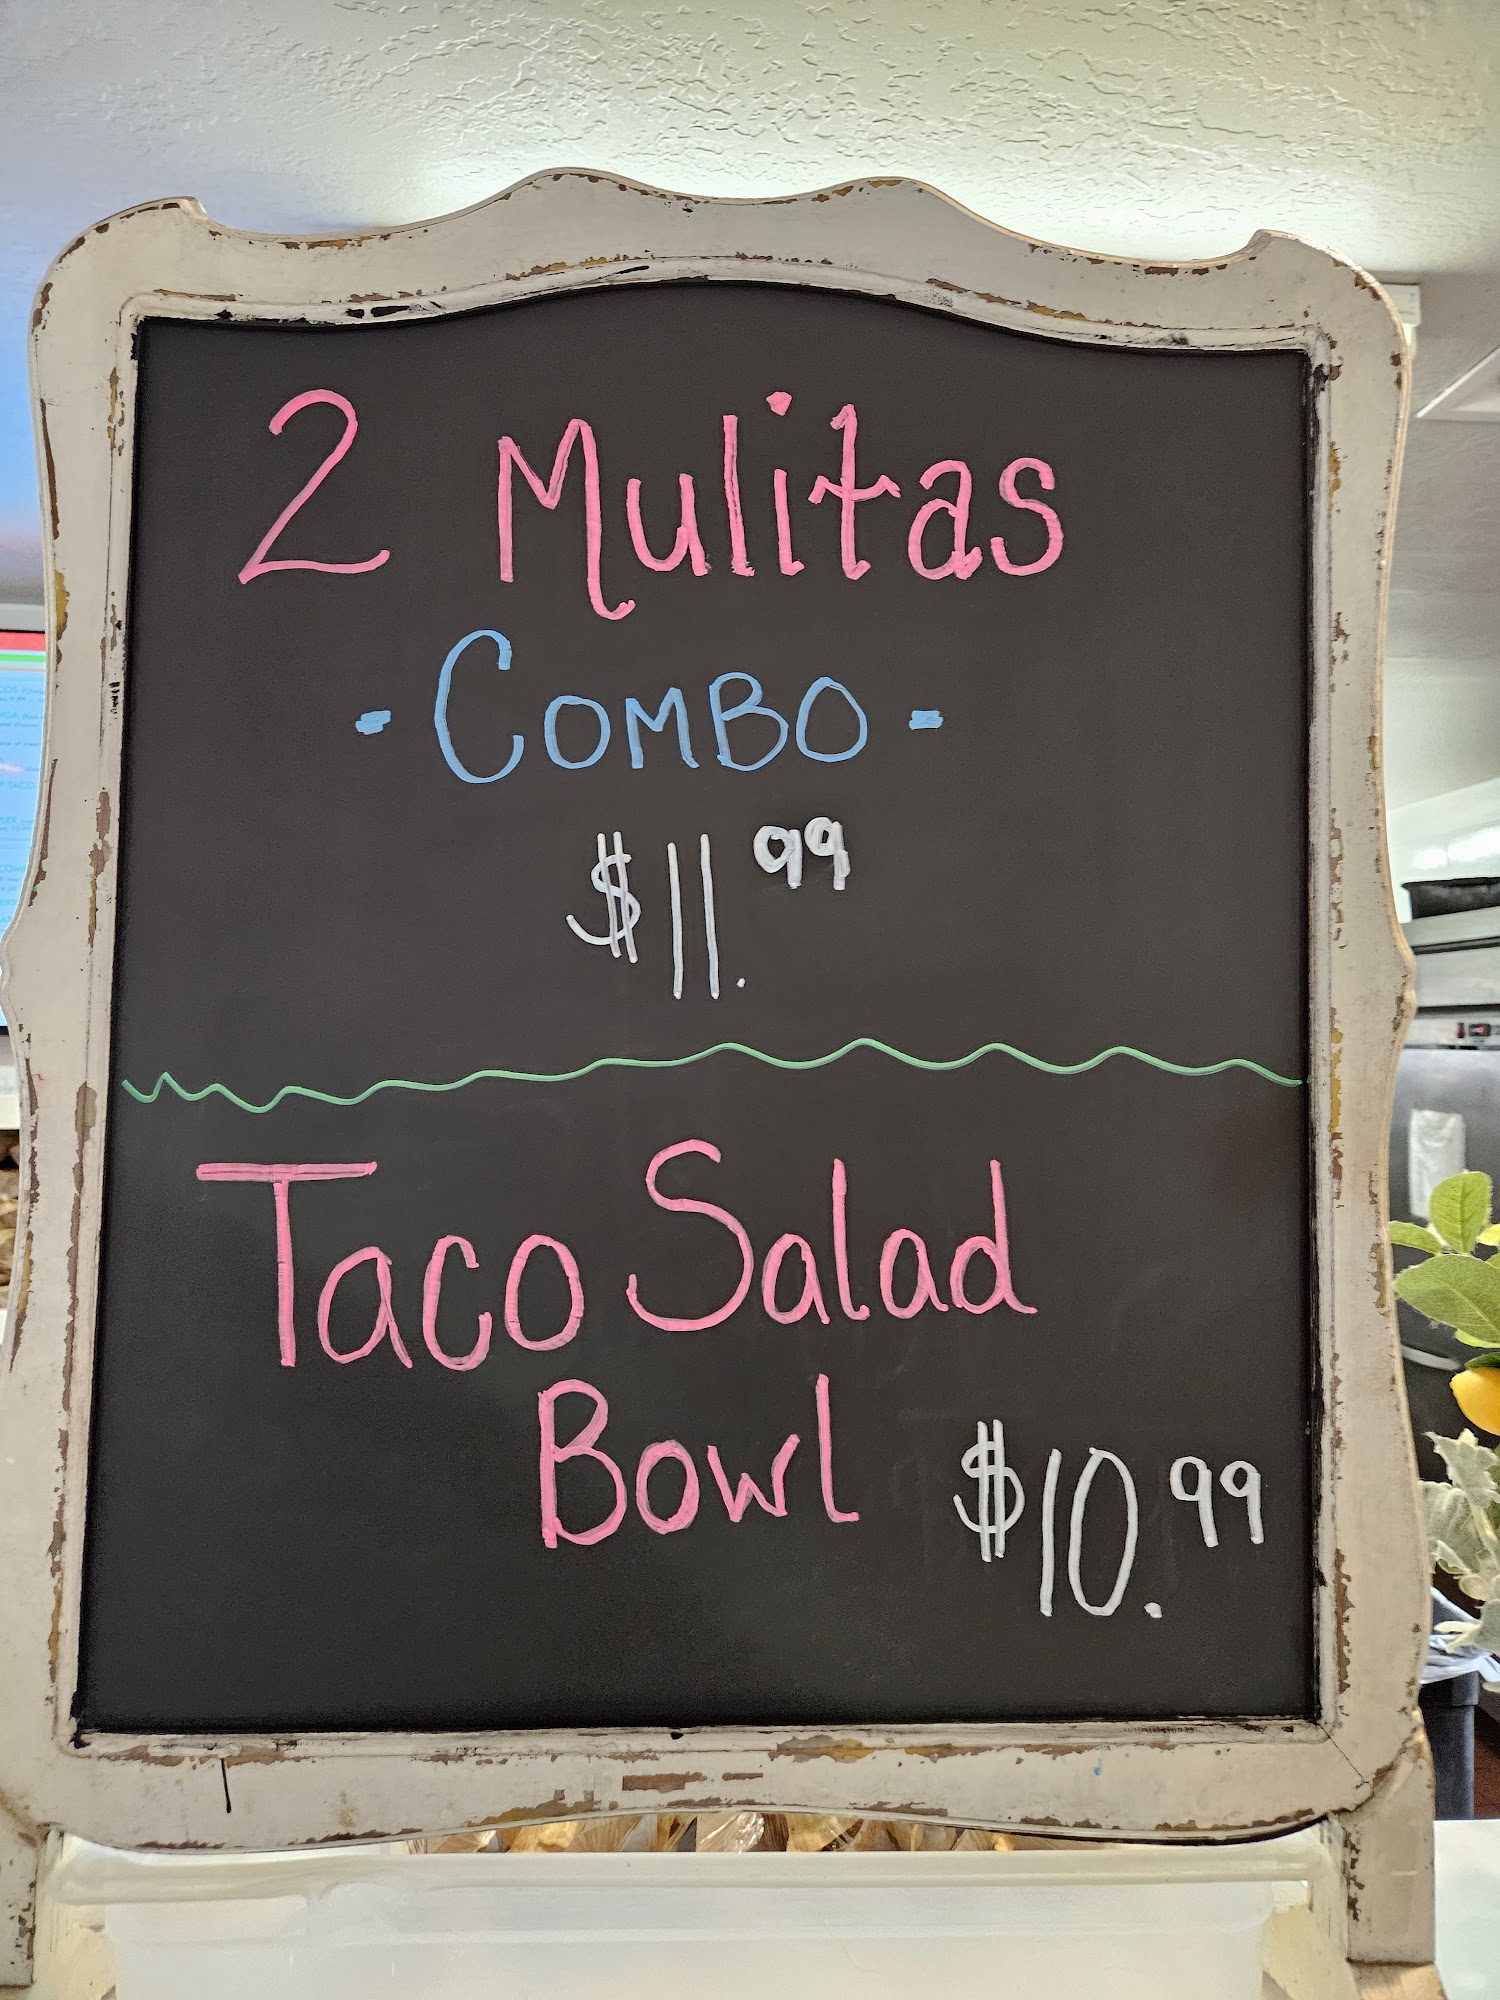 2 Mulitas
- COMBO -
$11.99
Taco Salad
Bowl $10.99